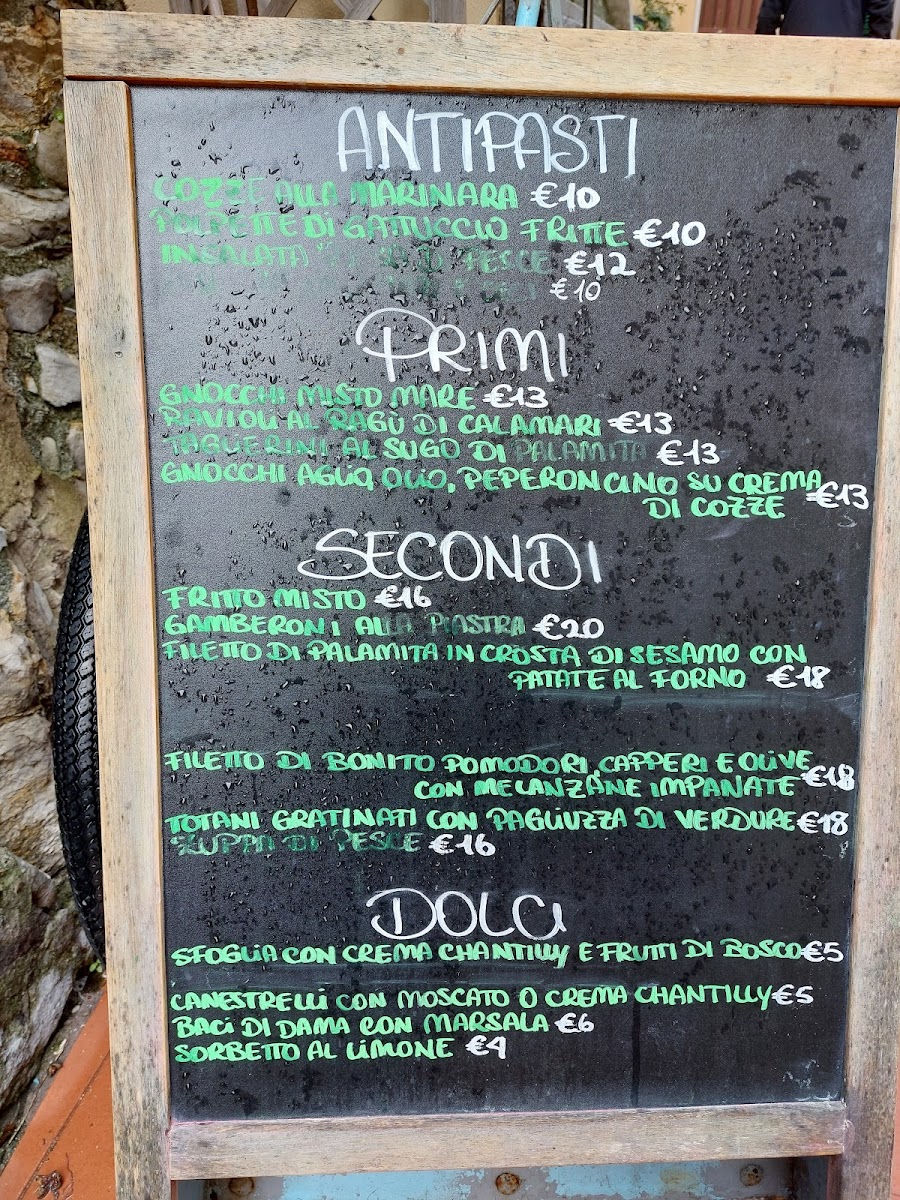 ANTIPASTI
COZZE ALLA MARINARA €10
POLPETTE DI GATTUCCIO FRITTE €10
INSALATA DI PESCE €12
€10
PRIMI
GNOCCHI MISTO MARE €13
RAVIOLI AL RAGÙ DI CALAMARI €13
TAGLIERINI AL SUGO DI PALAMITA €13
GNOCCHI AGLIO, OLIO, PEPERONCINO SU CREMA
DI COZZE €13
SECONDI
FRITTO MISTO €16
GAMBERONI ALLA PIASTRA €20
FILETTO DI PALAMITA IN CROSTA DI SESAMO CON
PATATE AL FORNO €18
FILETTO DI BONITO POMODORI, CAPPERI E OLIVE
CON MELANZANE IMPANATE €18
TOTANI GRATINATI CON PAGLIUZZA DI VERDURE €18
ZUPPA DI PESCE €16
DOLCI
SFOGLIA CON CREMA CHANTILLY E FRUTTI DI BOSCO €5
CANESTRELLI CON MOSCATO O CREMA CHANTILLY €5
BACI DI DAMA CON MARSALA €6
SORBETTO AL LIMONE €4